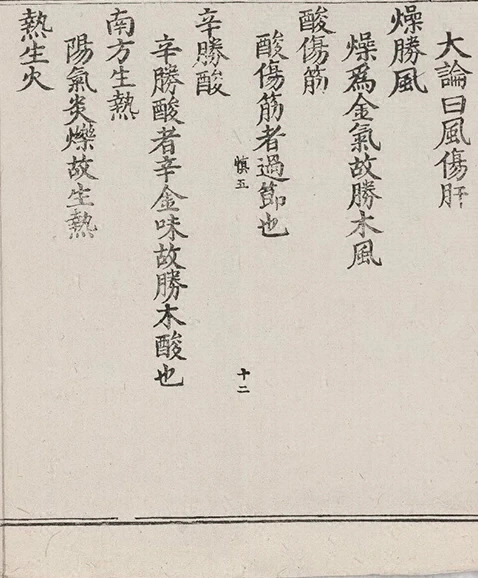 大論曰風傷肝
燥勝風
燥爲金氣故勝木風
酸傷筋
酸傷筋者過節也
慎五
十二
辛勝酸
辛勝酸者辛金味故勝木酸也
南方生熱
陽氣炎爍故生熱
熱生火